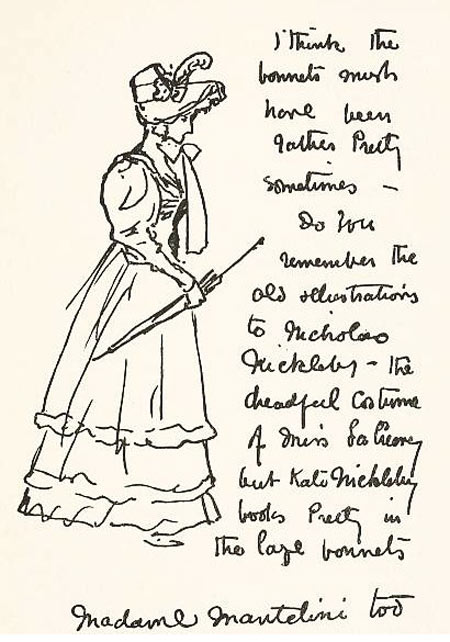 I think the
bonnets must
have been
rather Pretty
sometimes –
Do You
remember the
old illustrations
to Nicholas
Nickleby – the
dreadful Costume
of Miss La Creevy
but Kate Nickleby
looks Pretty in
the large bonnets
Madame Mantelini too